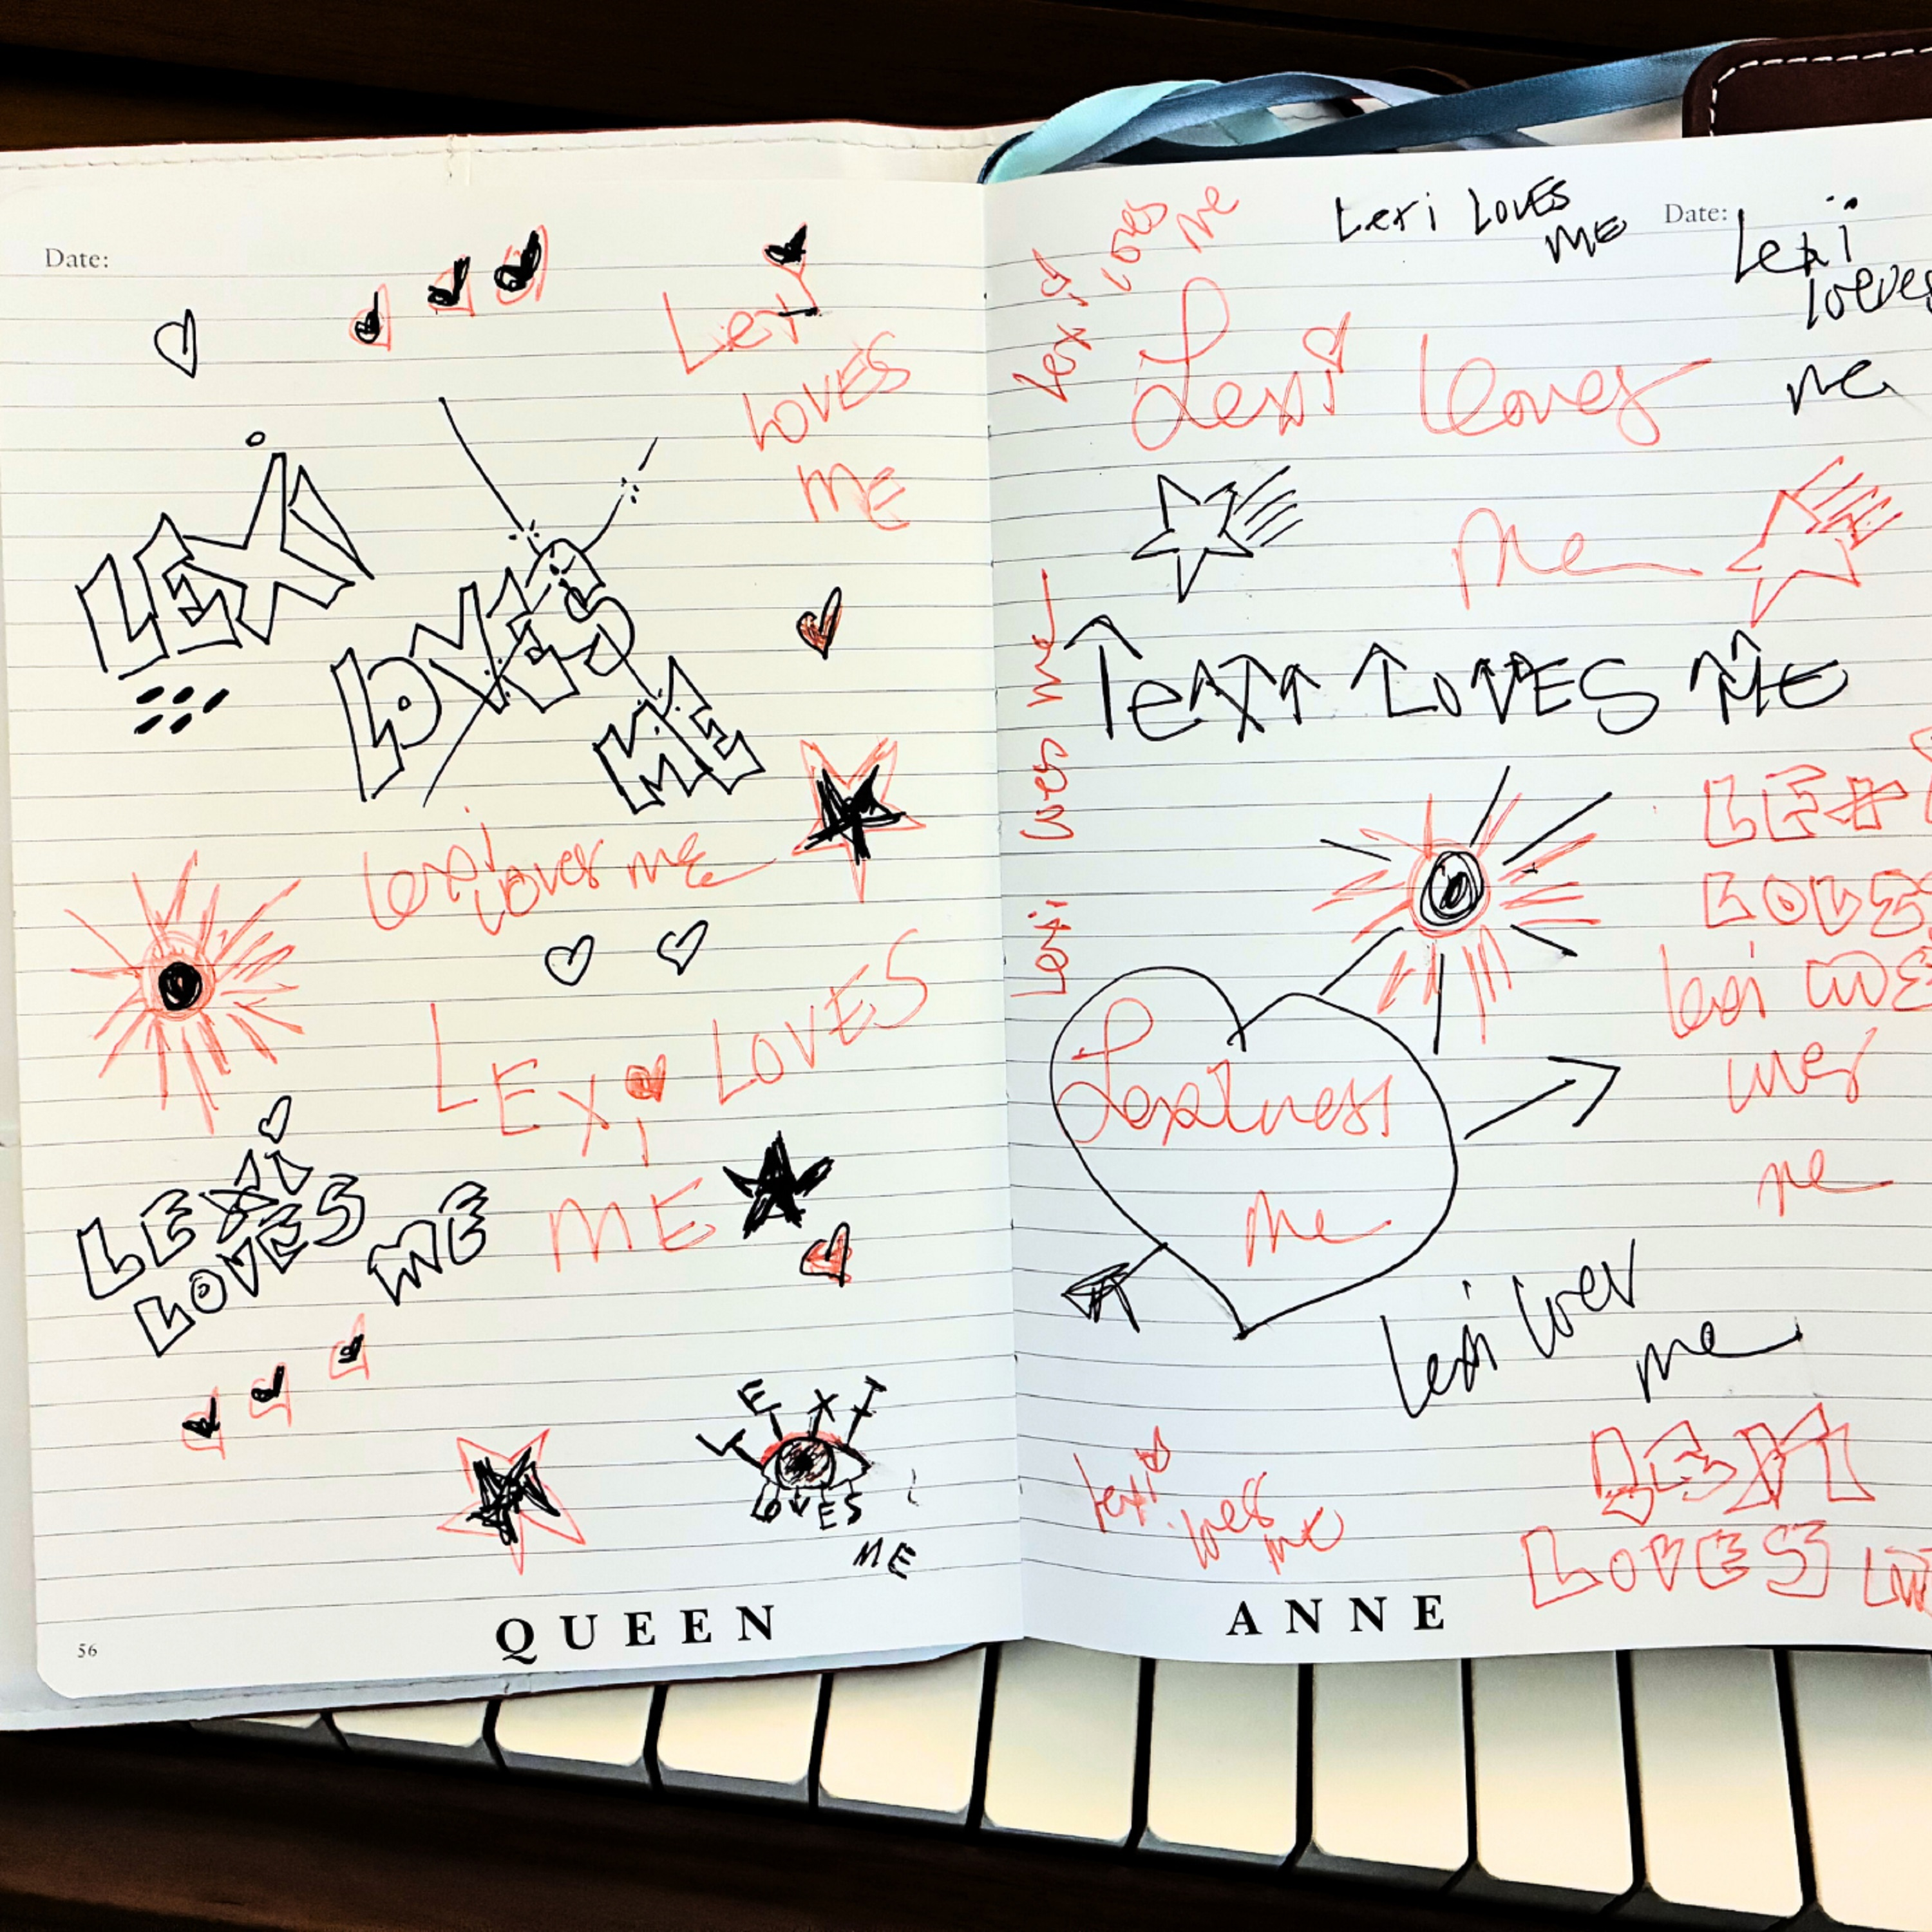 Date:
LEXI
LOVES
ME
LEXI
LOVES
ME
Lexi loves me
LEXI LOVES
ME
LEXI
LOVES ME
LEXI
LOVES
ME
QUEEN
56
Lexi loves me
Lexi LOVES
ME
Date:
Lexi
loeves
me
Lexi loves
me
Lexi loves me
LeXI LOVES ME
LEXI
LOVES
me
me
Lexi loves
me
Lexi
loves
me
LEXI
LOVES
ANNE